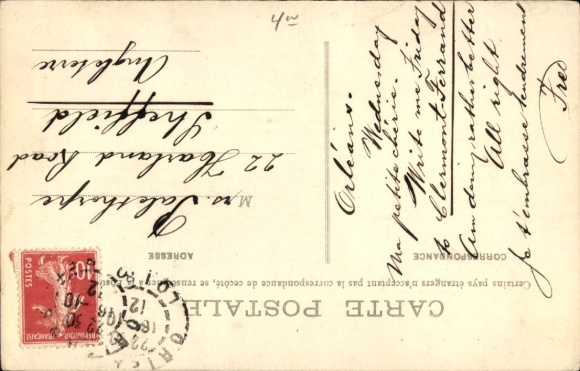 4m
CARTE POSTALE
Certains pays étrangers n'acceptant pas la correspondance de ce côté, se renseigner à la Poste
CORRESPONDANCE
ADRESSE
Orléans.
Wednesday
Ma petite chérie.
Write me Friday
to Clermont-Ferrand
Am doing rather better
All right
Je t'embrasse tendrement
Fred
Mrs. Palethorpe
22 Harland Road
Sheffield
Angleterre
10